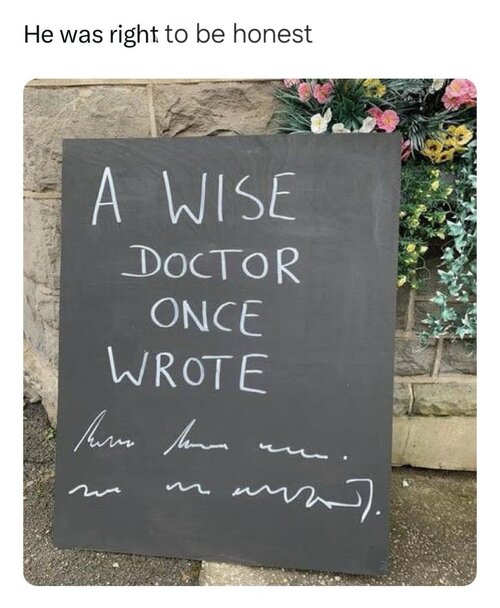 He was right to be honest
A WISE
DOCTOR
ONCE
WROTE